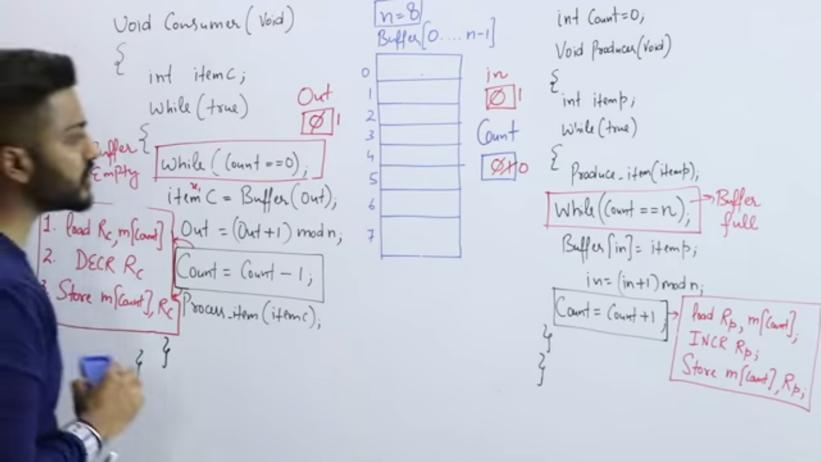 Void Consumer(Void)
{
int itemc;
While(true)
{
Buffer
Empty
While(Count==0);
itemC = Buffer(Out);
Out = (Out+1) mod n;
Count = Count-1;
Process_item(itemc);
}
}
1. load Rc, m[Count]
2. DECR Rc
Store m[Count], Rc
Out
0 1
n=8
Buffer[0....n-1]
0
1
2
3
4
5
6
7
in
0 1
Count
0 1 0
int Count=0;
Void Producer(Void)
{
int itemp;
While(true)
{
Produce_item(itemp);
While(Count==n); → Buffer
full
Buffer[in]=itemp;
in=(in+1)mod n;
Count=Count+1;
}
}
load Rp, m[Count];
INCR Rp;
Store m[Count], Rp;